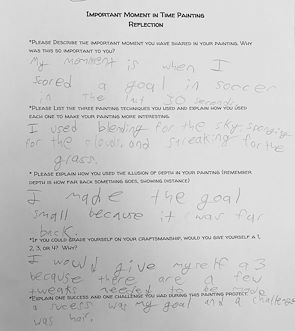 IMPORTANT MOMENT IN TIME PAINTING
REFLECTION
*PLEASE DESCRIBE THE IMPORTANT MOMENT YOU HAVE SHARED IN YOUR PAINTING. WHY
WAS THIS SO IMPORTANT TO YOU?
My moment is when I
scored a goal in soccer
in the last 30 seconds.
*PLEASE LIST THE THREE PAINTING TECHNIQUES YOU USED AND EXPLAIN HOW YOU USED
EACH ONE TO MAKE YOUR PAINTING MORE INTERESTING.
I used blending for the sky, sponging
for the clouds, and streaking for the
grass.
* PLEASE EXPLAIN HOW YOU USED THE ILLUSION OF DEPTH IN YOUR PAINTING (REMEMBER
DEPTH IS HOW FAR BACK SOMETHING GOES, SHOWING DISTANCE)
I made the goal
small because it was far
back.
*IF YOU COULD GRADE YOURSELF ON YOUR CRAFTSMANSHIP, WOULD YOU GIVE YOURSELF A 1,
2, 3, OR 4? WHY?
I would give myself a 3
because there are a few
tweaks needed to be
*EXPLAIN ONE SUCCESS AND ONE CHALLENGE YOU HAD DURING THIS PAINTING PROJECT
a success was my goal and a challenge
was hair.